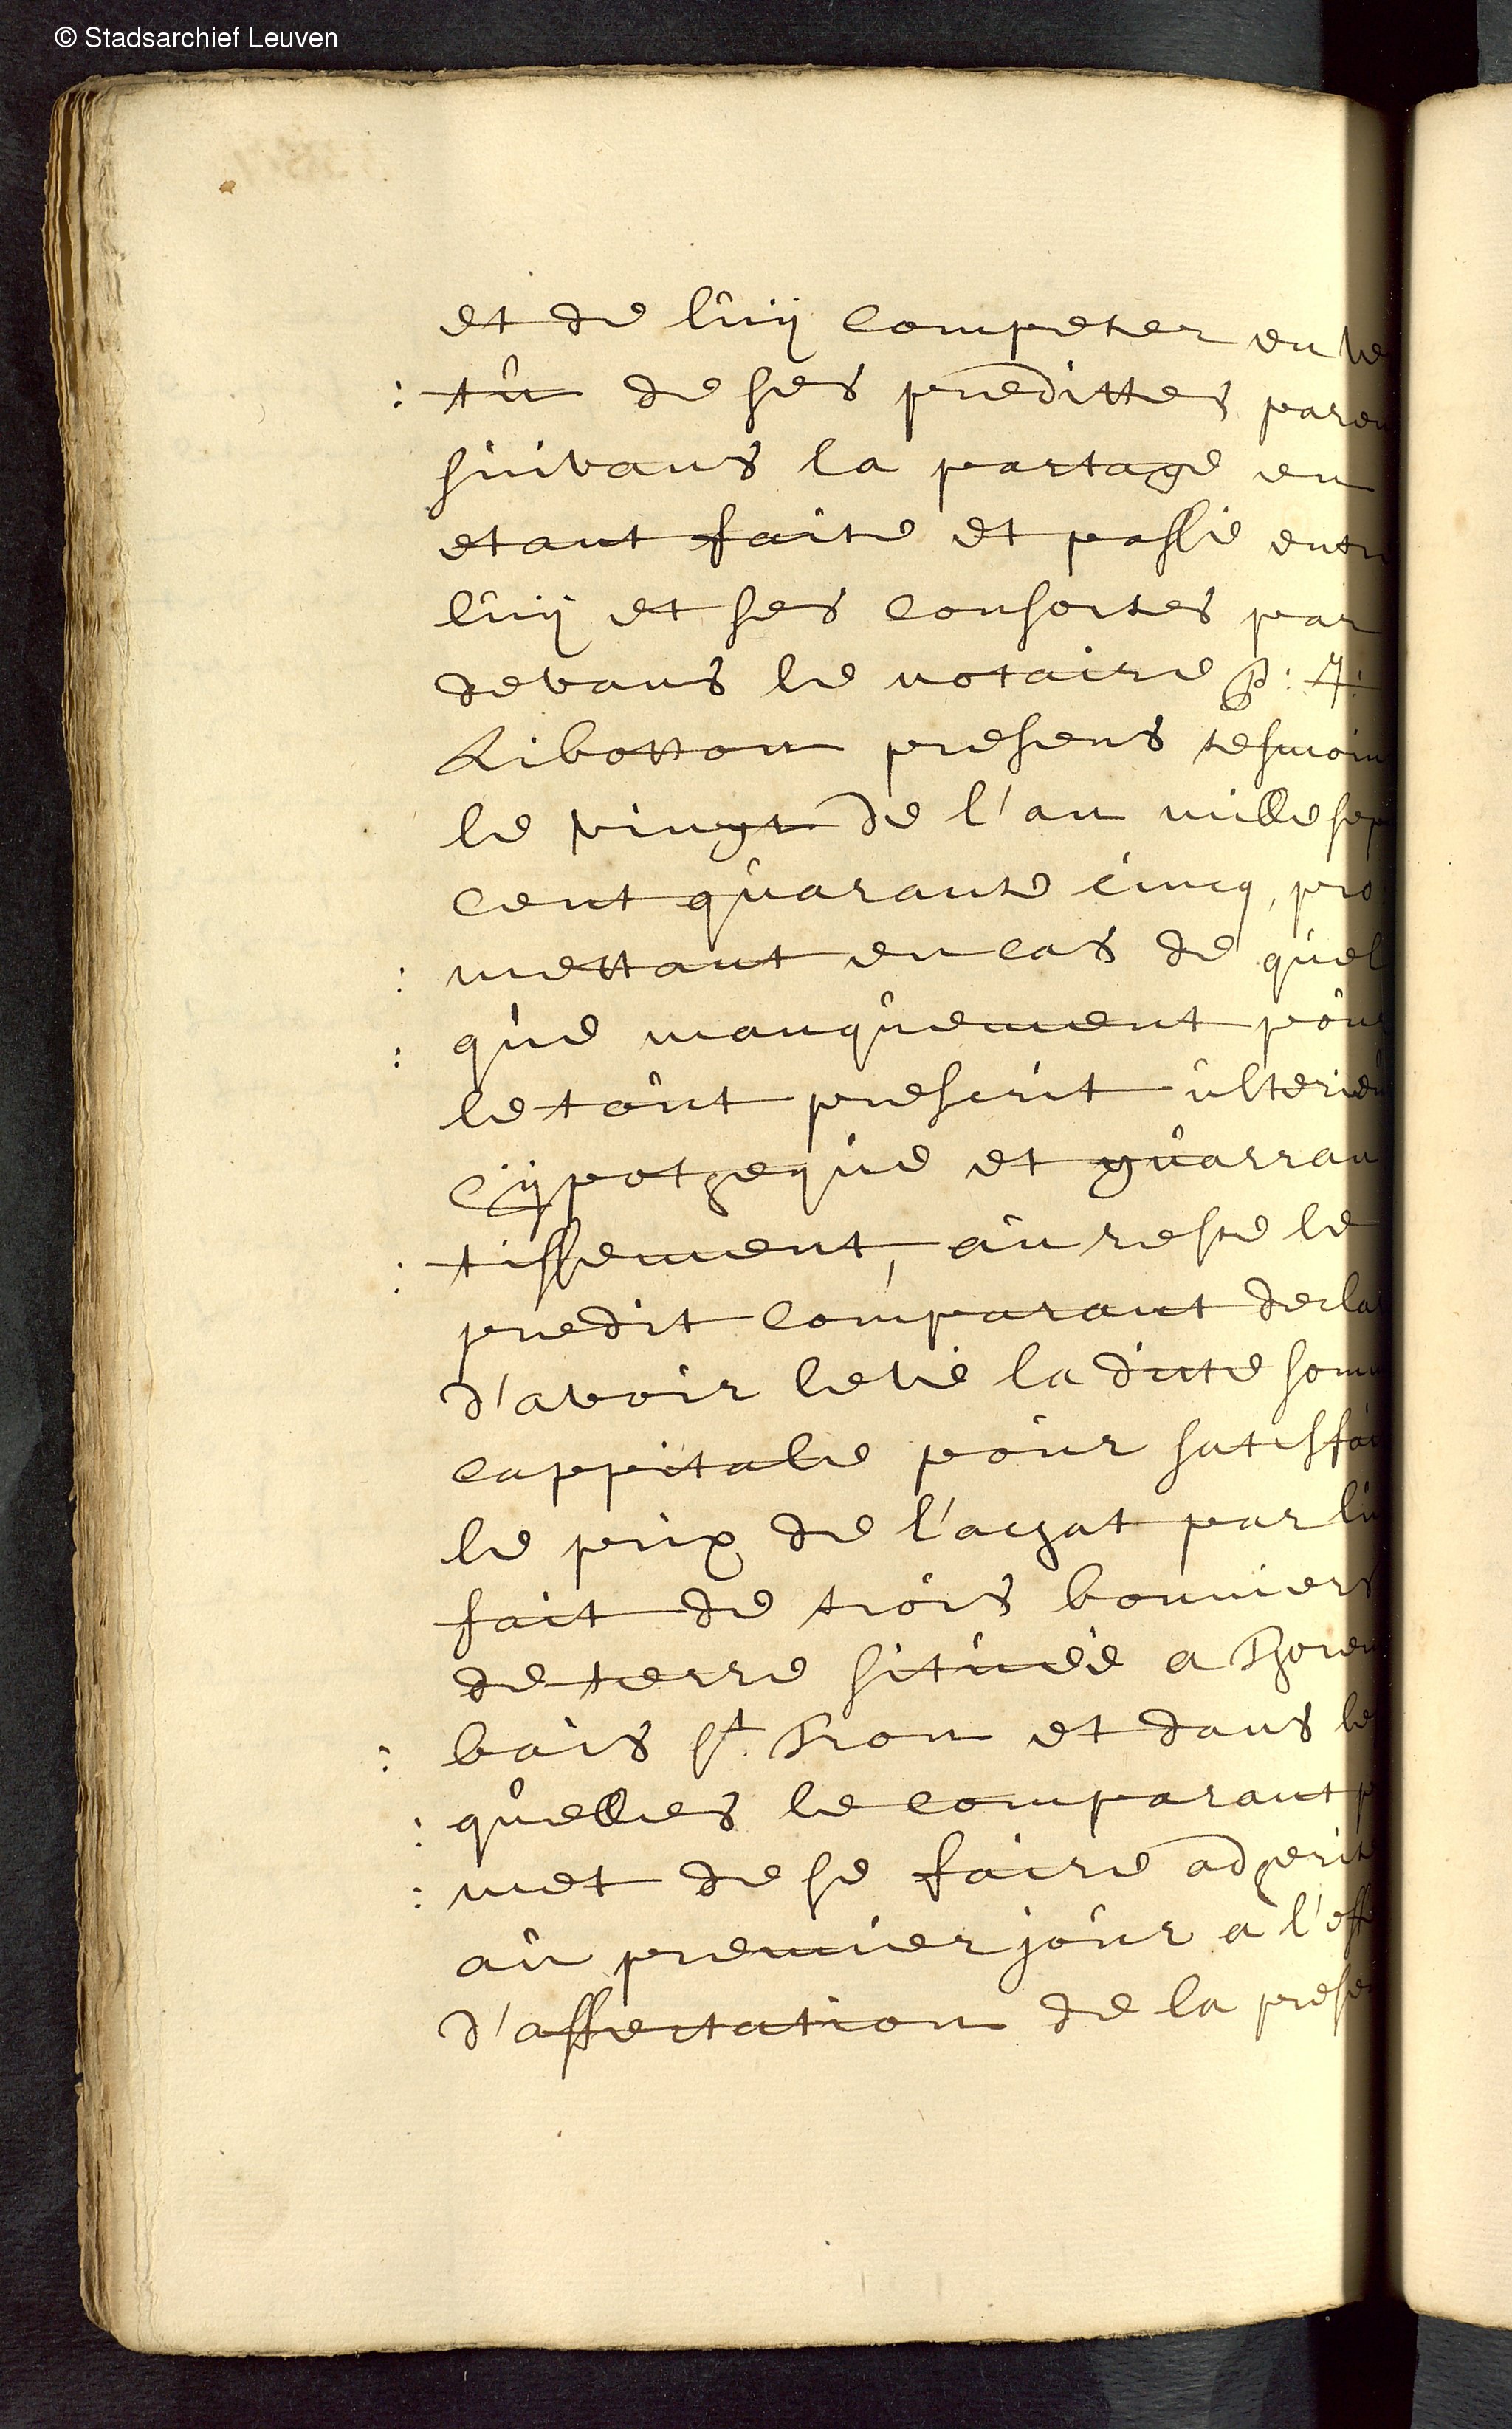 © Stadsarchief Leuven
et de luÿ competer en ve
: tu de ses predittes paren
suivans la partage en
etant faite et passé entr
luÿ et ses consortes par
devans le notaire P: J:
Libotton presens tesmoin
le vingt de l'an mille sep
cent quarante cincq, pro
: mettant en cas de quel
: que manquement pour
le tout prescrit ulterieu
hÿpotheque et guarran
: tissement, au reste le
predit comparant decla
d'avoir levé la ditte som
cappitale pour satisfai
le prix de l'achat par lu
fait de trois bonniers
de terre située a Thorem
: bais St. Tron et dans les
: quelles le comparant p
: met de se faire adherite
au premier jour a l'effe
d'affectation de la prese